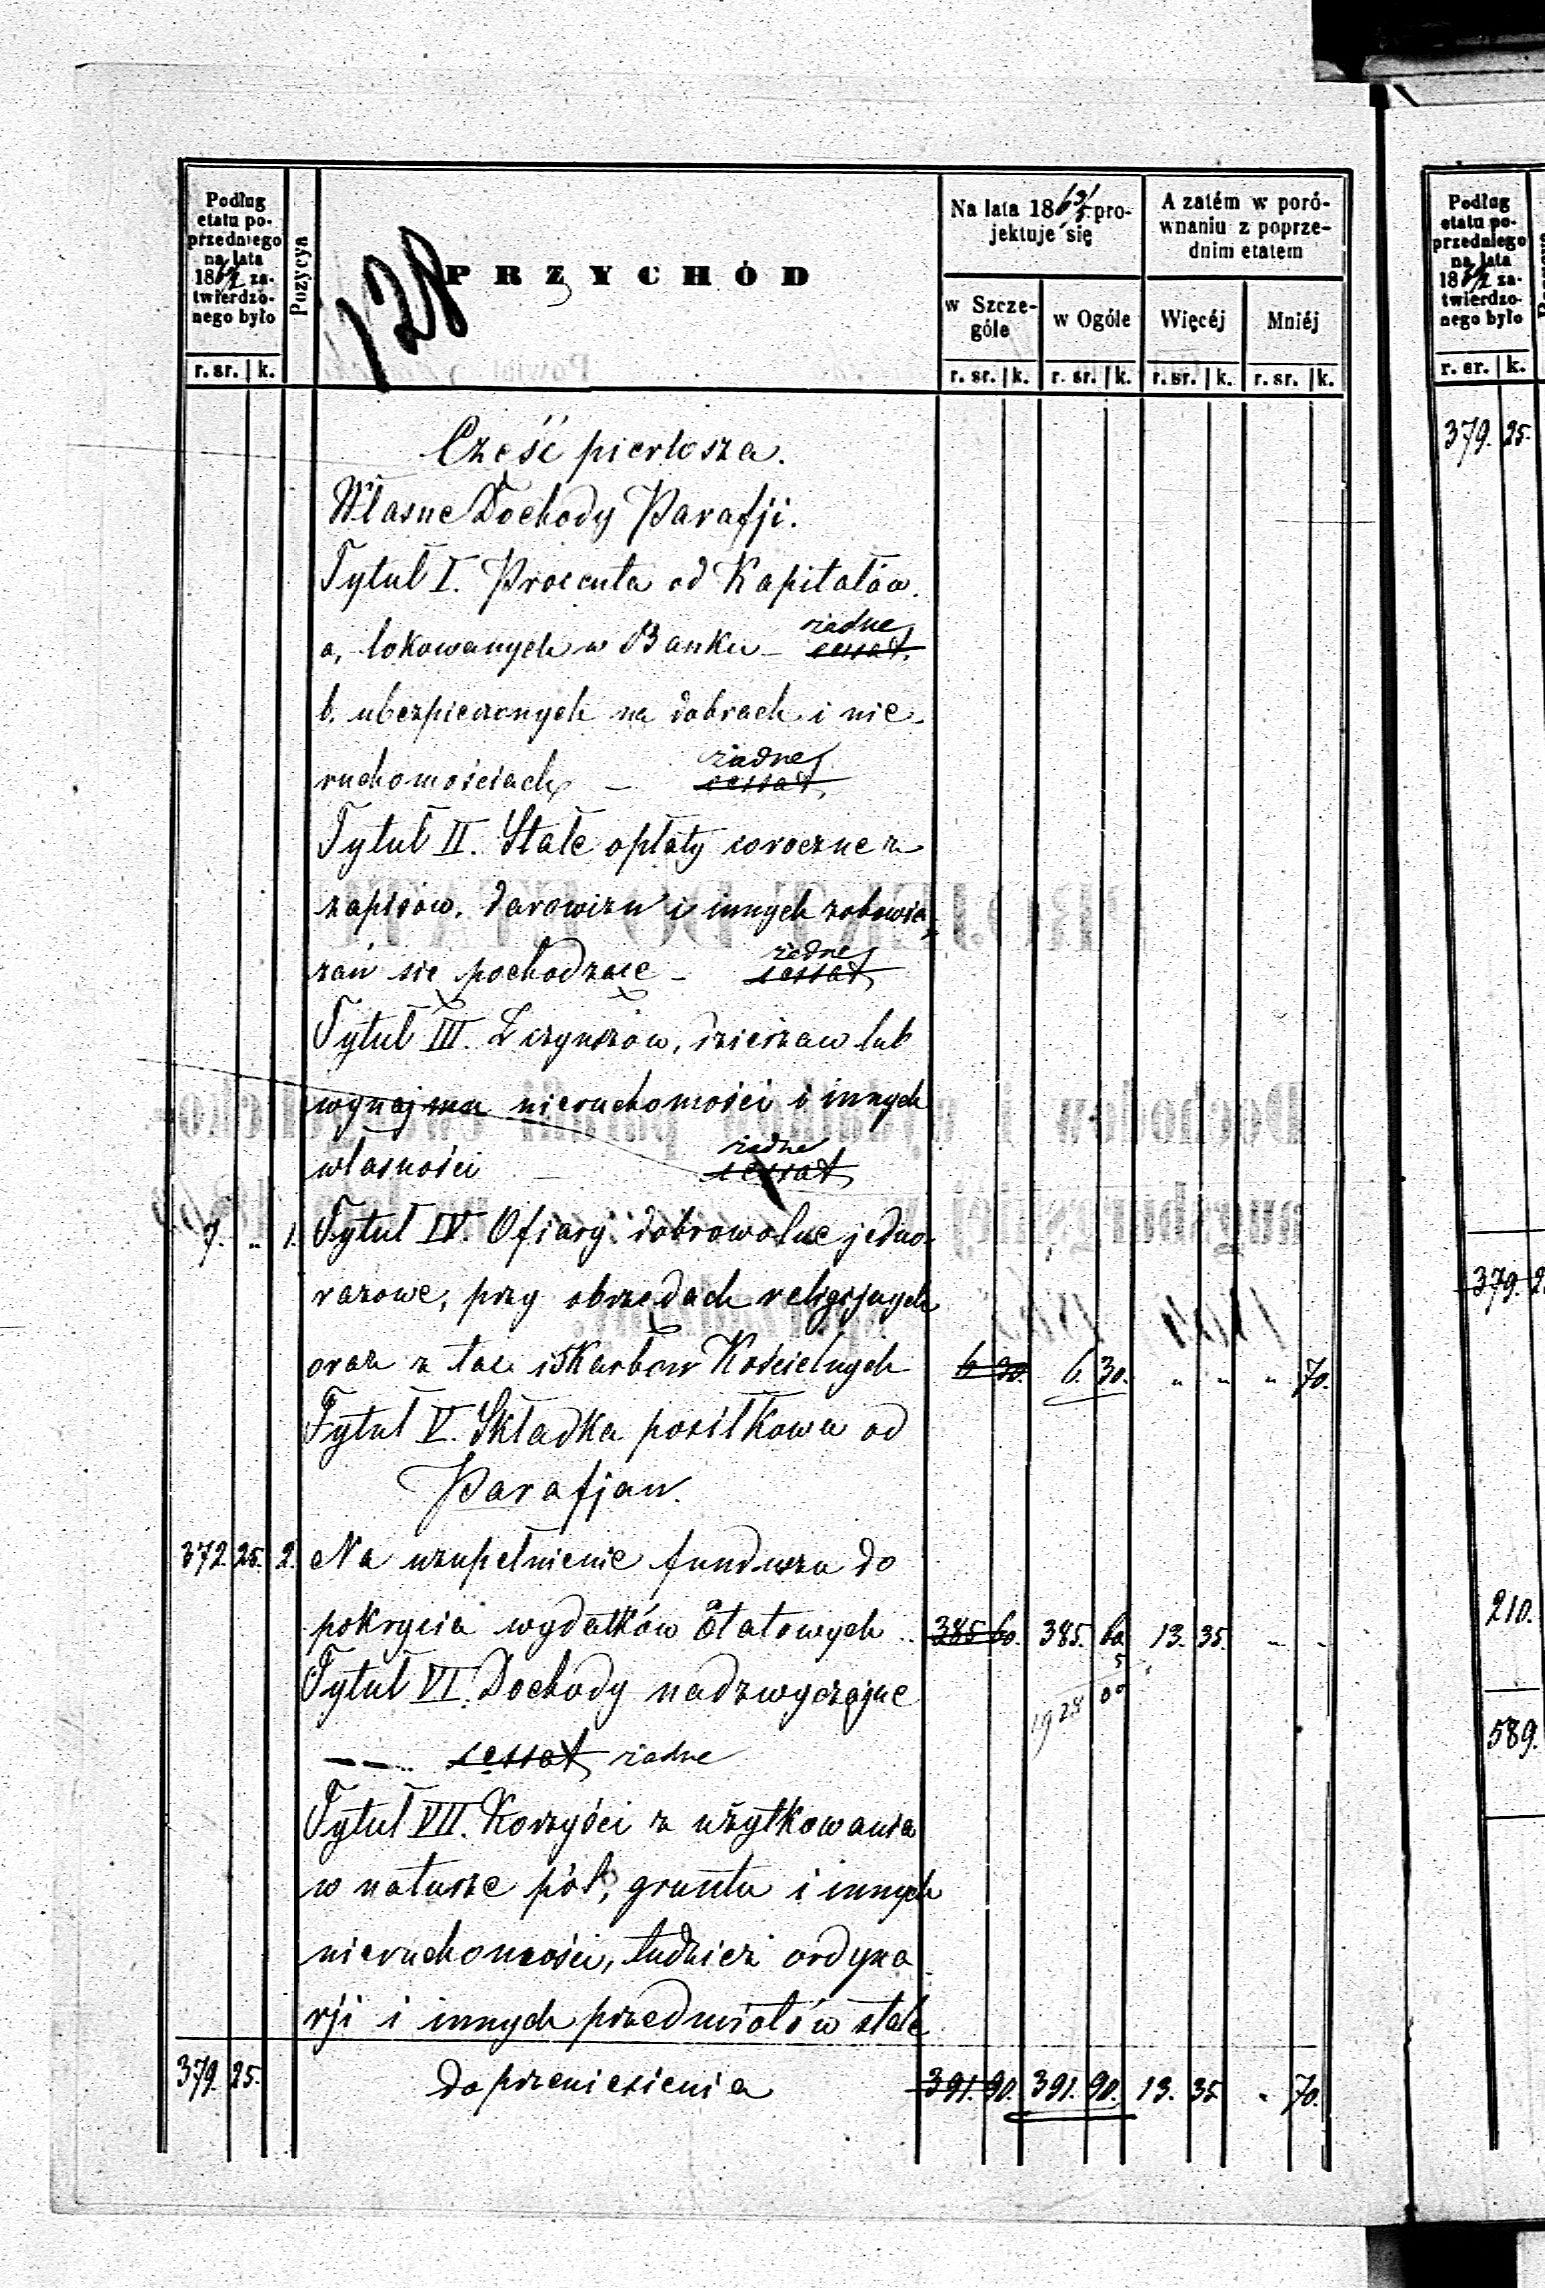 Podług
etatu po-
przedniego
na lata
186 za-
twierdzo-
nego było
Pozycya
128
PRZYCHÓD
Na lata 186 pro-
jektuje się
A zatém w poró-
wnaniu z poprze-
dnim etatem
w Szcze-
góle
w Ogóle
Więcéj
Mniéj
r. sr. k.
r. sr. k. r. sr. k. r. sr. k. r. sr. k.
Część pierwsza.
Własne Dochody Parafji.
Tytuł I. Procenta od Kapitałów.
żadne
a, lokowanych w Banku – cessat.
b. ubezpieczonych na dobrach i nie-
żadne
ruchomościach – cessat,
Tytuł II. Stałe opłaty coroczne z
zapisów, darowizn i innych zobowią-
żadne
zań się pochodzące – cessat
Tytuł III. Z czynszów, dzierżaw lub
wynajmu nieruchomości i innych
żadne
własności – cessat
7. „ 1. Tytuł IV. Ofiary dobrowolne jedno-
razowe, przy obrzędach religijnych
oraz z tac i skarbon Kościelnych 6 30. 6. 30. „ „ „ 70.
Tytuł V. Składka posiłkowa od
Parafjan.
372 25. 2. Na uzupełnienie funduszu do
pokrycia wydatków Etatowych .. 385 60. 385. 60 13. 35. - -
5
Tytuł VI. Dochody nadzwyczajne
19 28 00
cessat, żadne
Tytuł VII. Korzyści z użytkowania
w naturze pól, gruntu i innych
nieruchomości, tudzież ordyna-
rji i innych przedmiotów stale
379. 25. do przeniesienia 391. 90. 391. 90. 13. 35 „ 70.
Podług
etatu po-
przedniego
na lata
186 za-
twierdzo-
nego było
r. sr. k.
379. 25.
379. 2
210.
589.